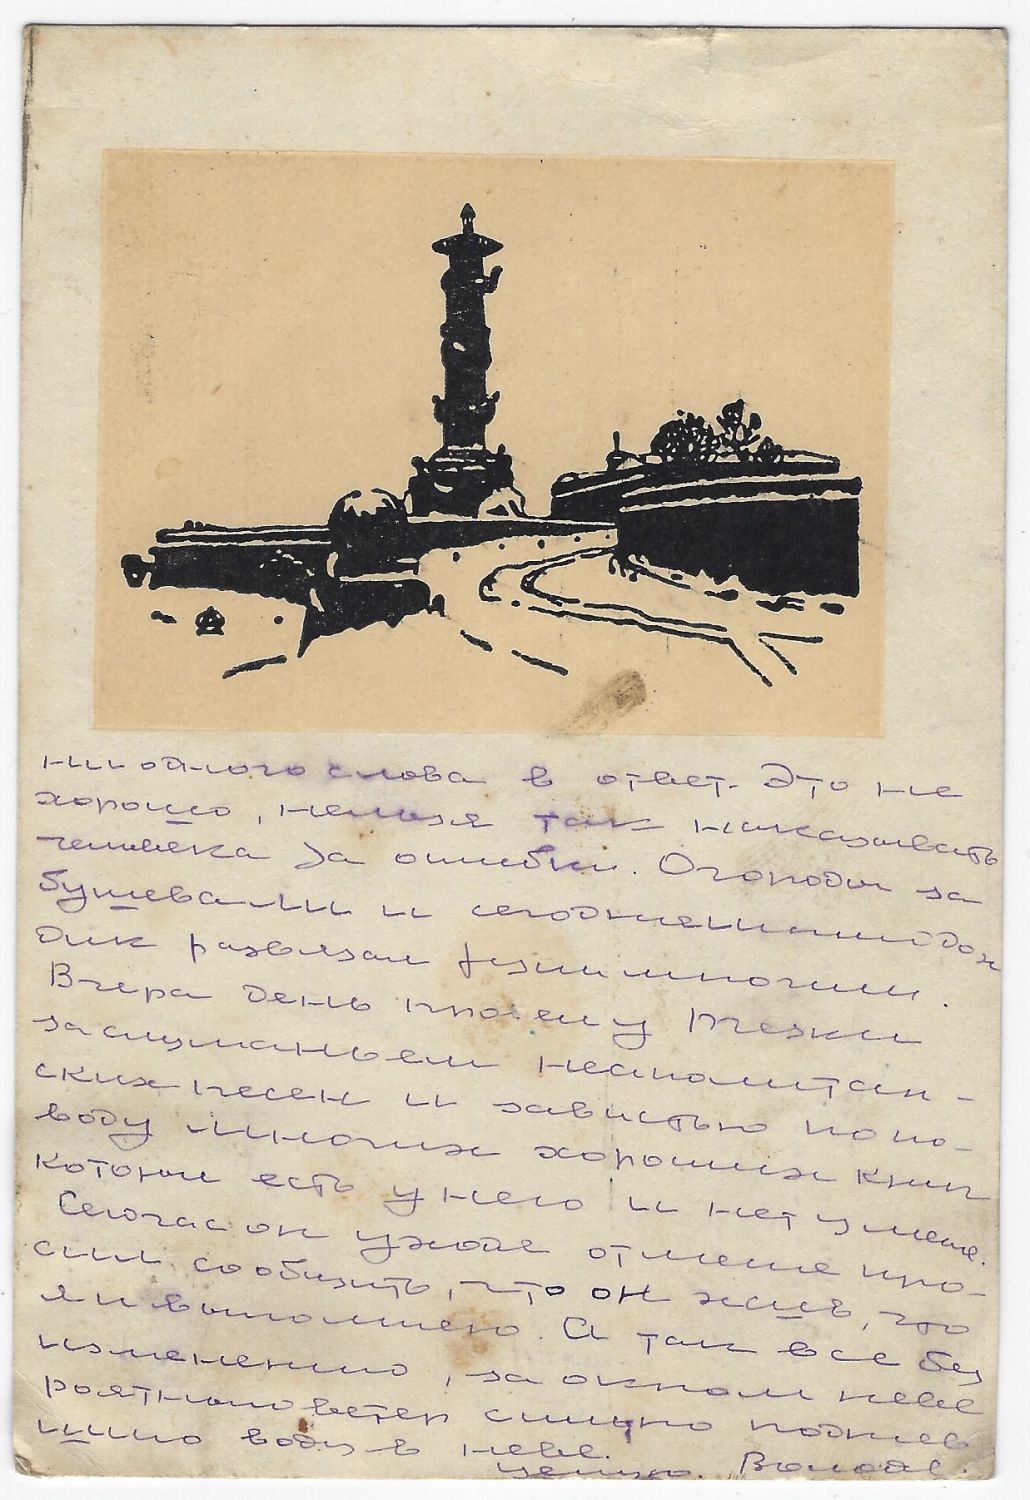 ни одного слова в ответ. Это не
хорошо, нельзя так наказывать
человека за ошибки. Огороды за
бушевали и сегодняшний дож
дик развязал
Вчера день провел у Ртезки
за слушаньем неаполитан-
ских песен и завистью по по-
воду многих хороших книг
которые есть у него и нет у меня.
Сейчас он уходя от меня про-
сил сообщить, что он жив, что
я и выполняю. А так все без
изменению, за окном неве
роятный ветер сильно поднев
шию воду в неве.
целую. Володя.